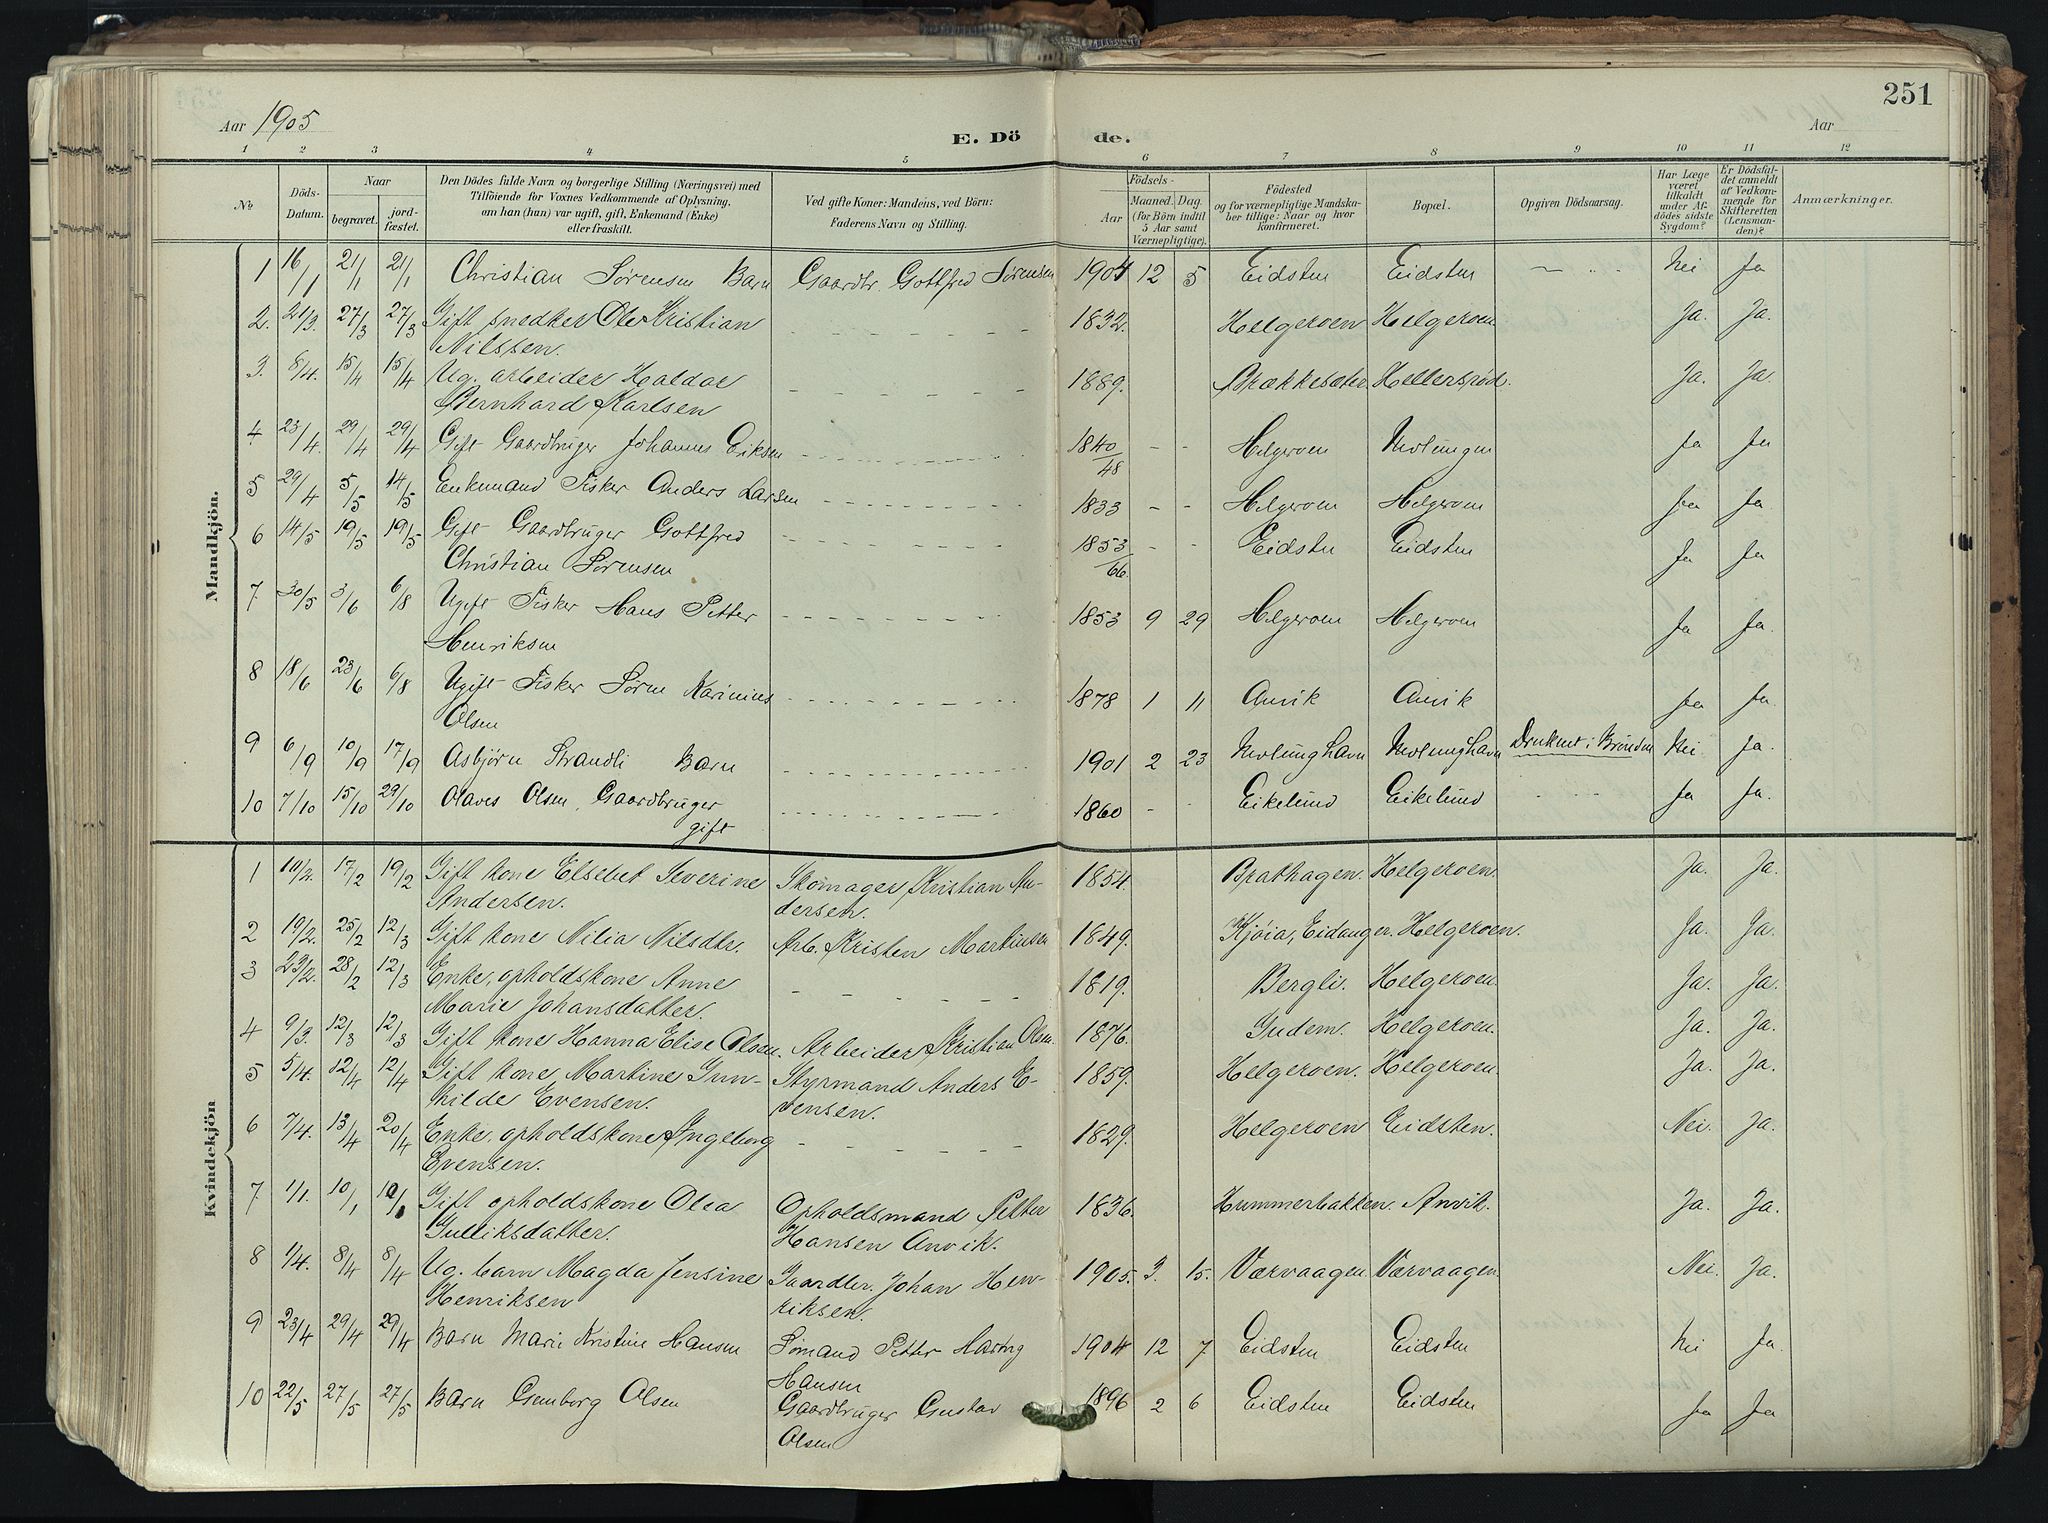 251
Aar 1905
E. Dö de.
Aar
1 2 3 4 5 6 7 8 9 10 11 12
№
Döds-Datum.
Naar
begravet.
jord-fæstet.
Den Dödes fulde Navn og borgerlige Stilling (Næringsvei) med
Tilföiende for Voxnes Vedkommende af Oplysning,
om han (hun) var ugift, gift, Enkemand (Enke)
eller fraskilt.
Ved gifte Koner: Mandens, ved Börn:
Faderens Navn og Stilling.
Födsels-
Aar
Maaned. Dag.
(for Börn indtil
5 Aar samt
Værnepligtige).
Födested
og for værnepligtige Mandska-
ber tillige: Naar og hvor
konfirmeret.
Bopæl.
Opgiven Dödsaarsag.
Har Læge
været
tilkaldt
under Af-
dödes sidste
Sygdom?
Er Dödsfal-
det anmeldt
af Vedkom-
mende for
Skifteretten
(Lensman-
den)?
Anmærkninger.
Mandkjön.
1 16/1 21/1 21/1 Christian Sørensen Barn Gaardbr. Gottfred Sørensen 1904 12 5 Eidsten Eidsten Nei Ja
2. 21/3. 27/3 27/3 Gift snedker Ole Kristian 1832. Helgeroen Helgeroen Ja. Ja.
Nilssen.
3. 8/4. 15/4 15/4 Ug. arbeider Haldor 1889. Brækkesæter Hellersrød. Ja. Ja.
Bernhard Karlsen
4 23/4. 29/4 29/4 Gift Gaardbruger Johannes Eiksen 1840/48 - - Helgeroen Nevlungen Ja Ja
5 29/4 5/5 14/5 Enkemand Fisker Anders Larsen 1833 - - Helgeroen Helgeroen Ja Ja
6 14/5 19/5 19/5 Gift Gaardbruger Gottfred 1853/66. - - Eidsten Eidsten Ja Ja
Christian Sørensen
7 30/5 3/6 6/8 Ugift Fisker Hans Petter 1853 9 29 Helgeroen Helgeroen Ja Ja.
Henriksen
8 18/6 23/6 6/8 Ugift Fisker Søren Karinius 1878 1 11 Anvik Anvik Ja Ja.
Olsen
9 6/9 10/9 17/9 Asbjørn Strandli Barn 1901 2 23 Nevlunghavn Nevlunghavn Druknet i Brønden Nei Ja.
10 7/10 15/10 29/10 Olaves Olsen, Gaardbruger 1860 - - Eikelund Eikelund Ja Ja.
gift
Kvindekjön
1 10/2. 17/2 19/2 Gift kone Elsebet Severine Skomager Kristian An- 1854. Brathagen. Helgeroen. Ja. Ja.
Andersen. dersen.
2 19/2. 25/2 12/3 Gift kone Nilia Nilsdtr. Arb. Kristen Martinsen 1849. Kjøia, Eidanger. Helgeroen. Ja. Ja.
3 23/2. 28/2 12/3 Enke, opholdskone Anne 1819. Bergli. Helgeroen. Ja. Ja.
Marie Johansdatter.
4 9/3. 12/3 12/3 Gift kone Hanna Elise Olsen. Arbeider Kristian Olsen. 1876. Gudem. Helgeroen. Ja. Ja.
5 5/4. 12/4 12/4 Gift kone Martine Gun- Styrmand Anders E- 1859. Helgeroen. Helgeroen. Ja. Ja.
hilde Evensen. vensen.
6 7/4. 13/4 20/4 Enke, opholdskone Ingeborg 1829. Helgeroen Eidsten. Nei. Ja.
Evensen.
7 1/1. 10/1 10/1 Gift opholdskone Olea Opholdsmand Petter 1836. Hummerbakken. Anvik. Ja. Ja.
Gulliksdatter. Hansen Anvik.
8 1/4. 8/4 8/4 Ug. barn Magda Jensine Gaardbr. Johan Hen- 1905. 3. 15. Værvaagen Værvaagen. Nei. Ja.
Henriksen riksen.
9 23/4 29/4 29/4 Barn Marie Kristine Hansen Sømand Petter Hartvig 1904 12 7 Eidsten Eidsten Nei Ja.
Hansen
10 22/5 27/5 27/5 Barn Olsen Gaardbruger Gustav 1896 2 6 Eidsten Eidsten Ja Ja
Olsen